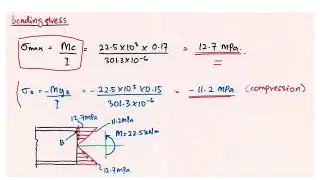 Bending stress
σmax = Mc/I = 22.5×10³ × 0.17 / 301.3×10⁻⁶ = 12.7 MPa.
σB = -MyB/I = - 22.5×10³ × 0.15 / 301.3×10⁻⁶ = - 11.2 MPa (compression)
12.7MPa
11.2MPa
B
M=22.5kNm
12.7MPa